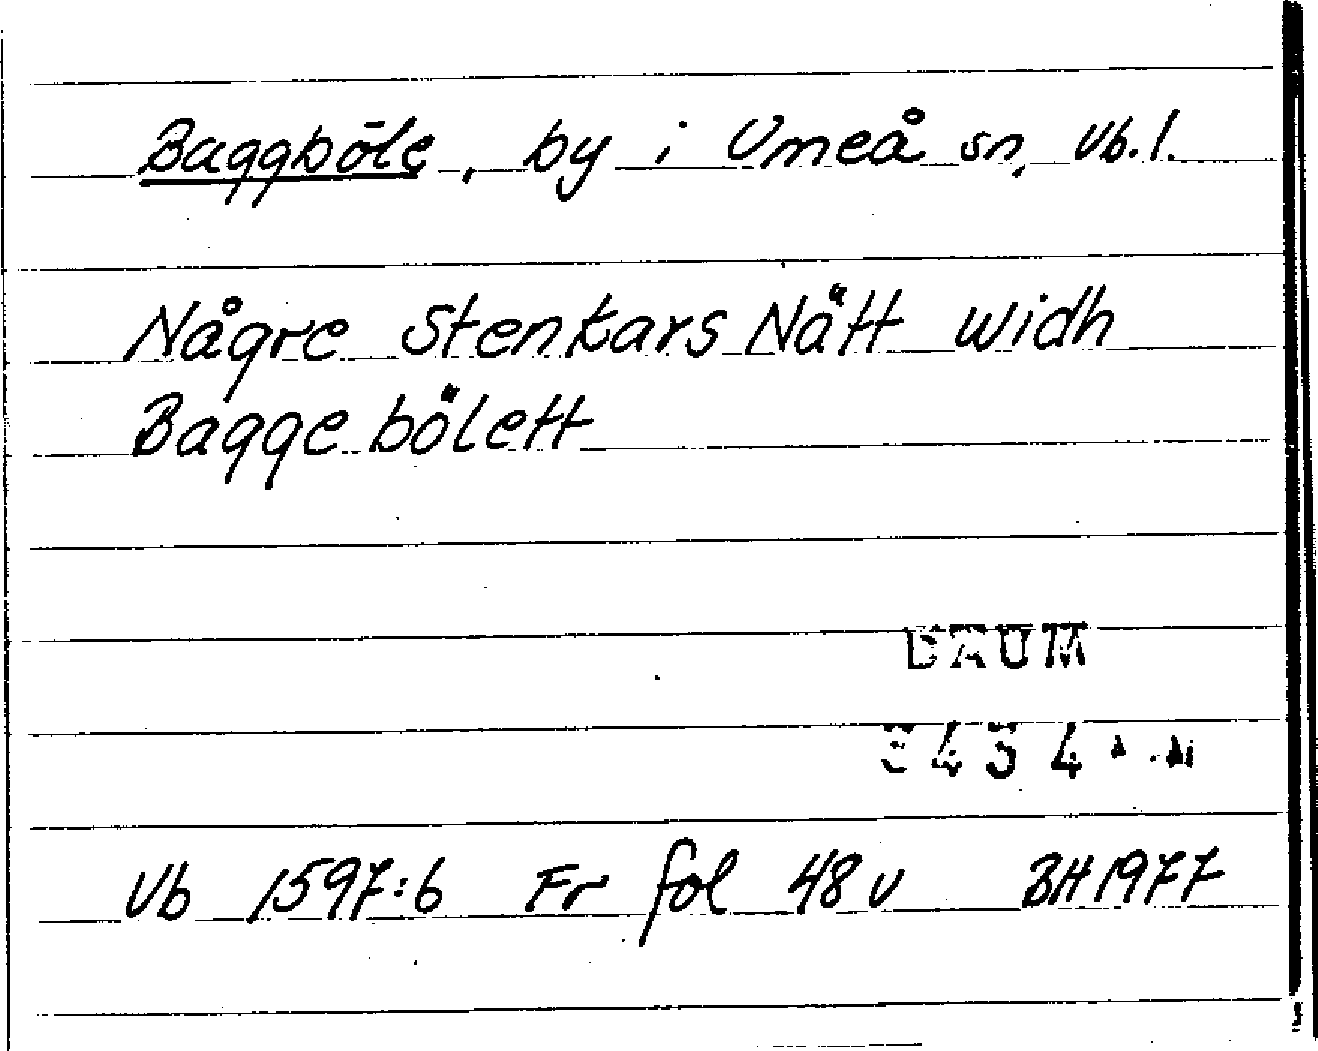 Baggböle, by i Umeå sn, Vb. l.
Någre Stenkars Nätt widh
Bagge bölett
DAUM
3434
Vb 1597:6 Fr fol 48 v BH 1977